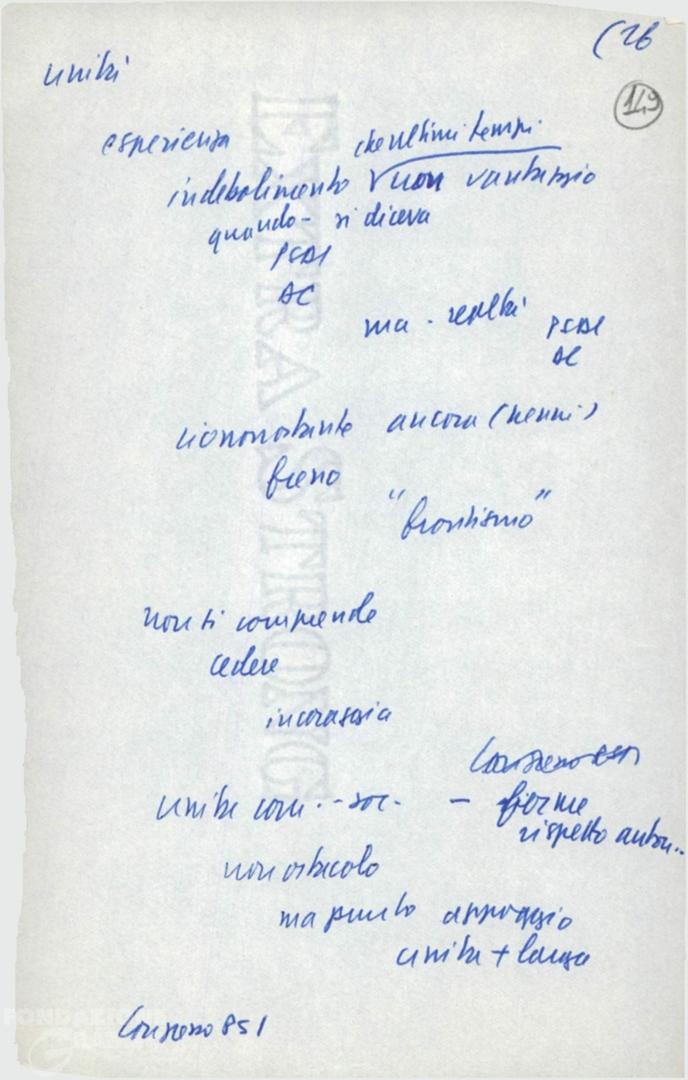 (26
149
unità
esperienza che ultimi tempi.
indebolimento non vantaggio
quando - si diceva
PSDI
DC
ma - realtà PSDI
DC
ciononostante ancora (Nenni)
freno
"frontismo"
non si comprende
cedere
incoraggia
Congresso
unità com. - soc. - forme
rispetto auton..
non ostacolo
ma punto appoggio
unità + larga
Congresso 851
EXTRA STRONG
FONDAZIONE